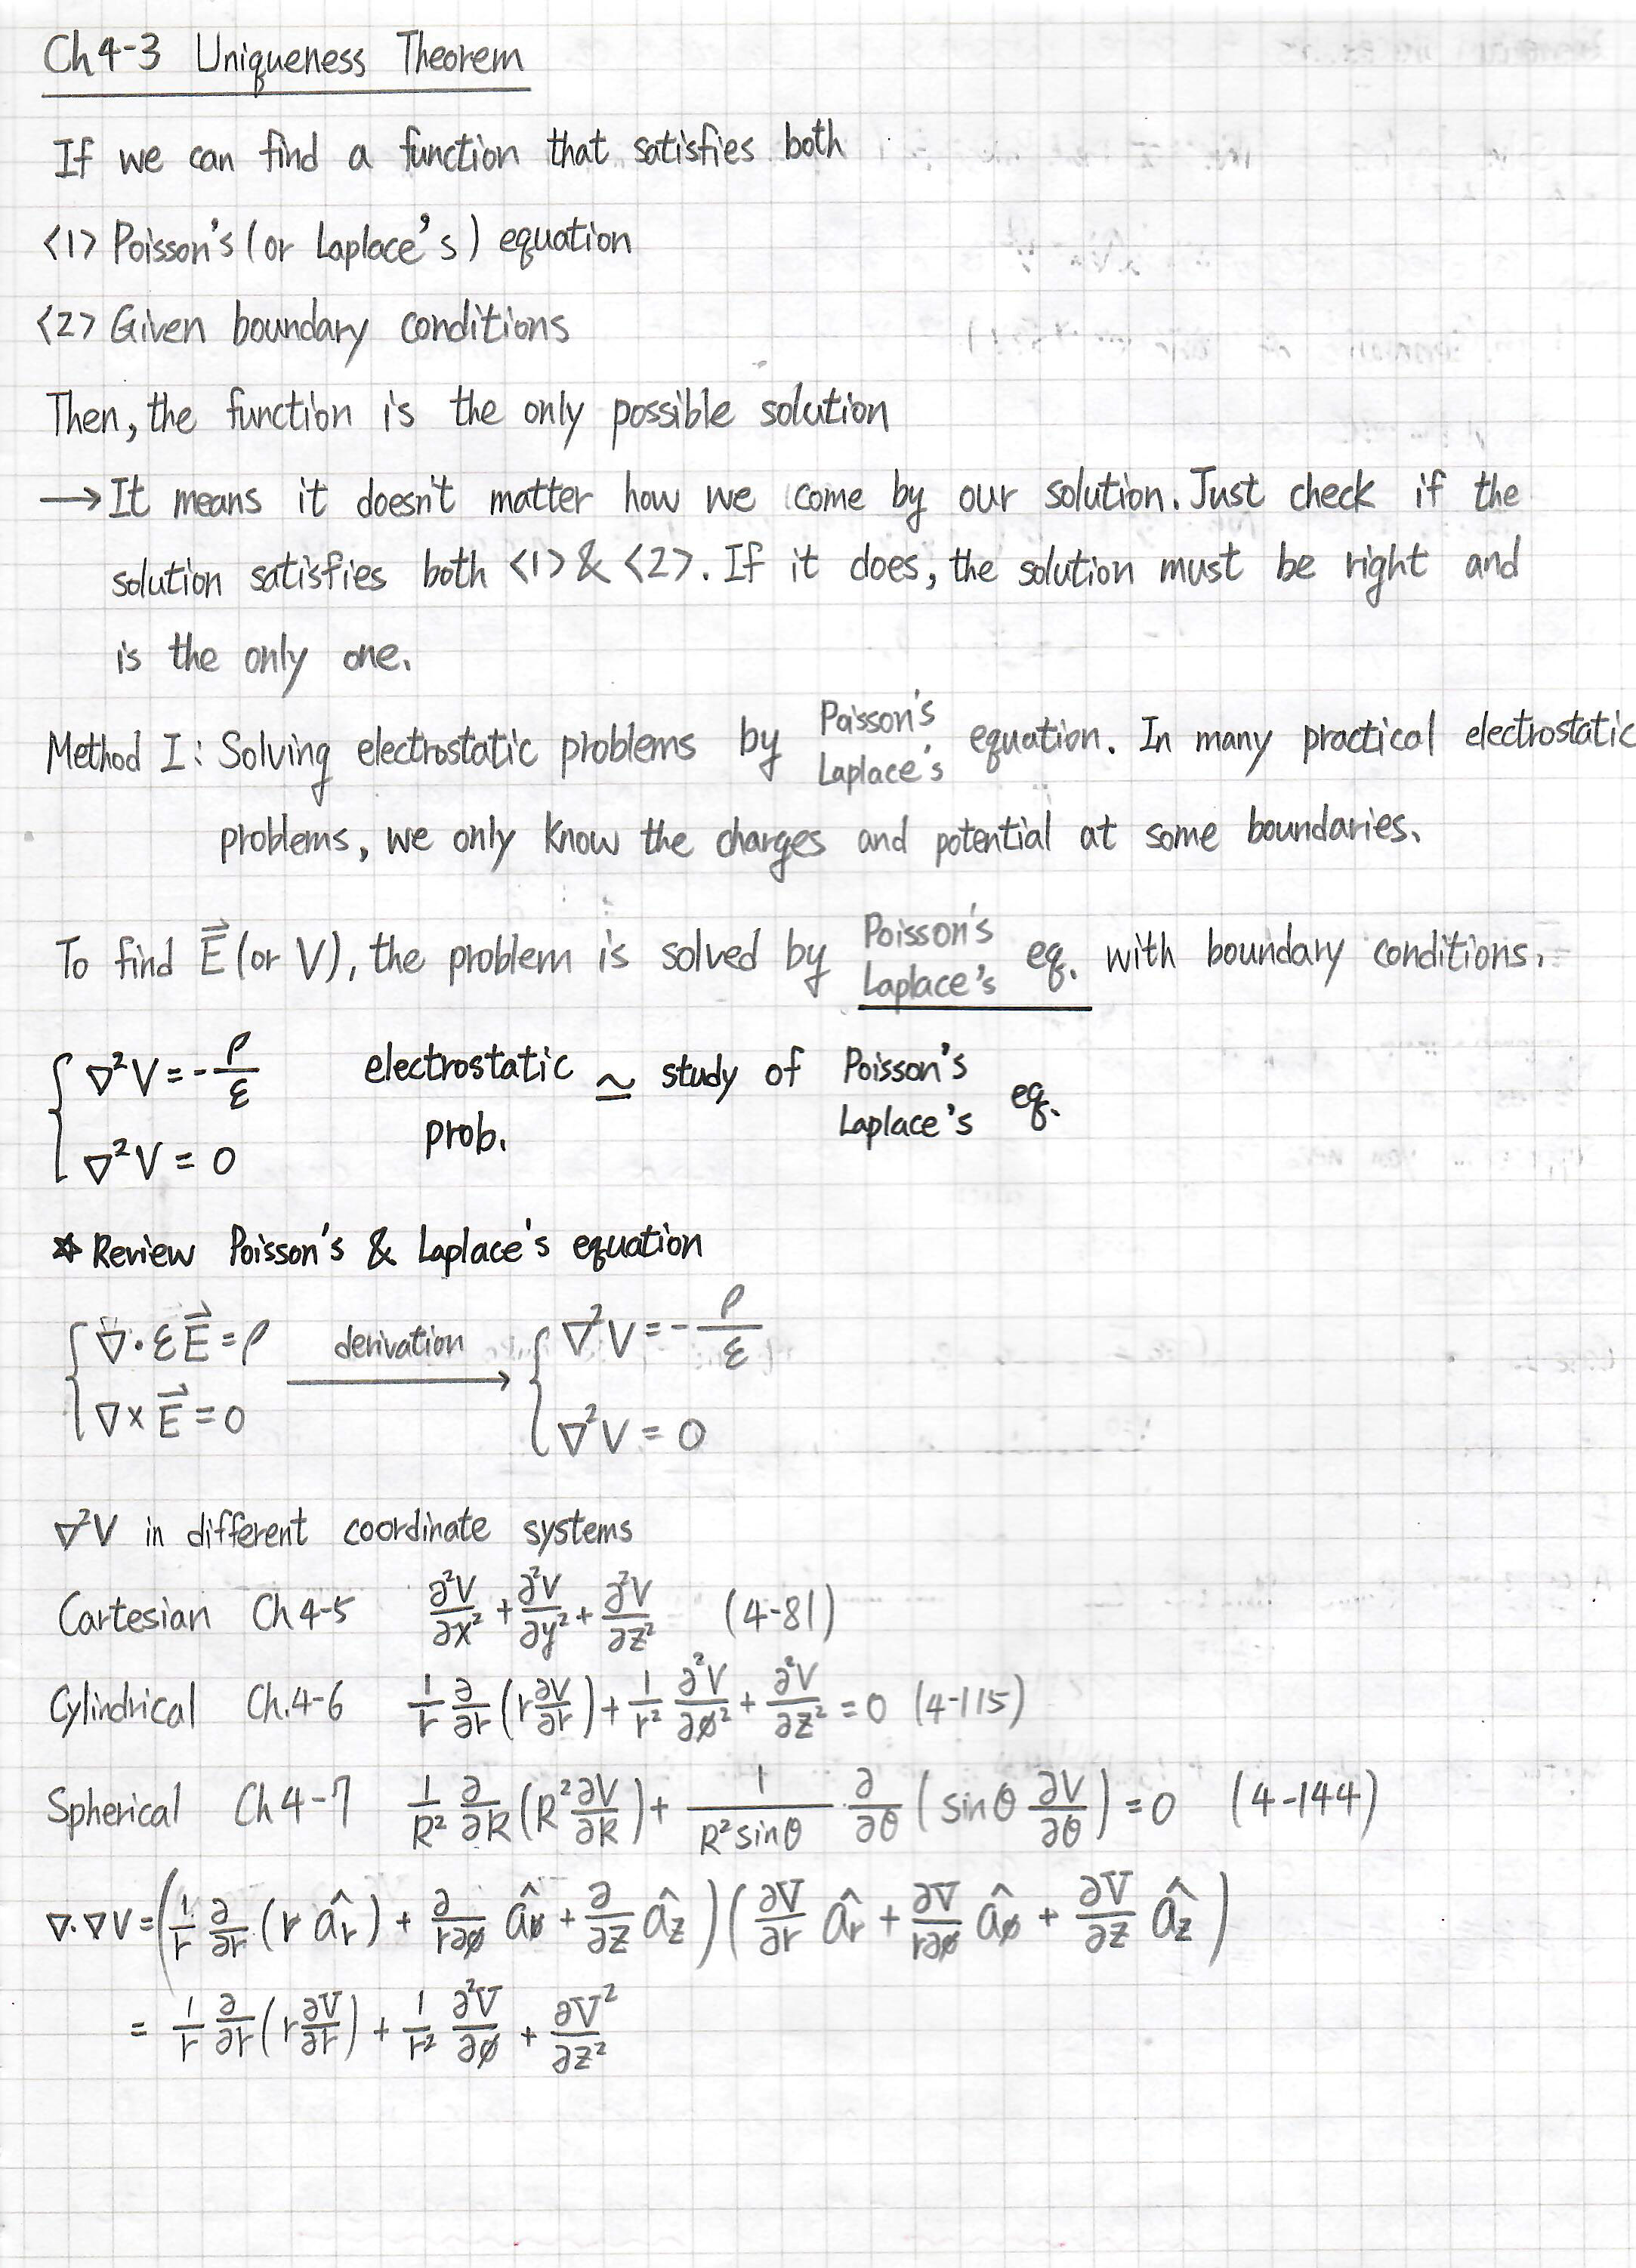 Ch4-3 Uniqueness Theorem
If we can find a function that satisfies both
<1> Poisson's (or Laplace's) equation
<2> Given boundary conditions
Then, the function is the only possible solution
→ It means it doesn't matter how we come by our solution. Just check if the
solution satisfies both <1> & <2>. If it does, the solution must be right and
is the only one.
Method I: Solving electrostatic problems by Poisson's Laplace's equation. In many practical electrostatic
problems, we only know the charges and potential at some boundaries.
To find E⃗ (or V), the problem is solved by Poisson's Laplace's eq. with boundary conditions.
∇²V = -ρ/ε electrostatic prob. ≃ study of Poisson's Laplace's eq.
∇²V = 0
☆ Review Poisson's & Laplace's equation
{ ∇·εE⃗ = ρ derivation → { ∇²V = -ρ/ε
∇×E⃗ = 0 ∇²V = 0
∇²V in different coordinate systems
Cartesian Ch4-5 ∂²V/∂x² + ∂²V/∂y² + ∂²V/∂z² (4-81)
Cylindrical Ch.4-6 1/r ∂/∂r (r ∂V/∂r) + 1/r² ∂²V/∂ø² + ∂²V/∂z² = 0 (4-115)
Spherical Ch4-7 1/R² ∂/∂R (R² ∂V/∂R) + 1/(R² sinθ) ∂/∂θ (sinθ ∂V/∂θ) = 0 (4-144)
∇·∇V = (1/r ∂/∂r (r âr) + ∂/r∂ø âø + ∂/∂z âz) (∂V/∂r âr + ∂V/r∂ø âø + ∂V/∂z âz)
= 1/r ∂/∂r (r ∂V/∂r) + 1/r² ∂²V/∂ø + ∂V²/∂z²